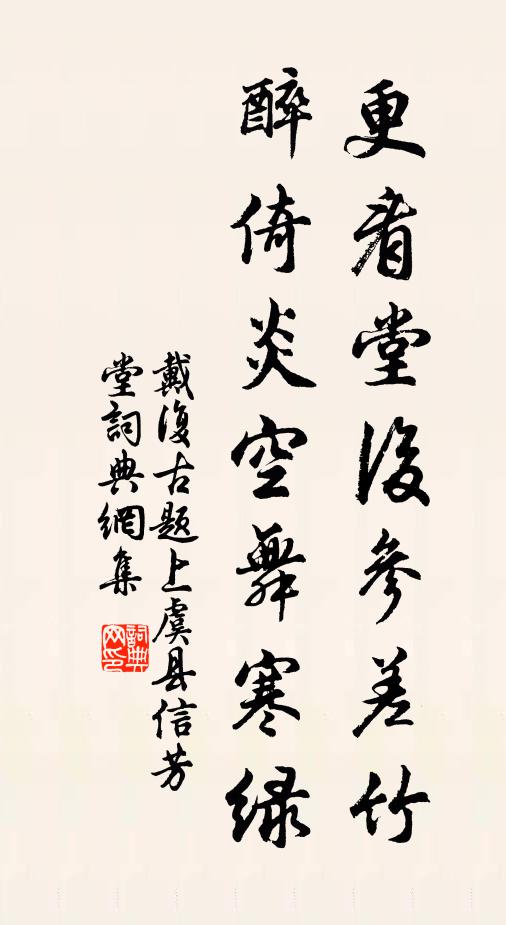 更看堂後參差竹
醉倚炎空舞寒緑
戴復古题上虞县信芳
堂詞典網集
詞典网印